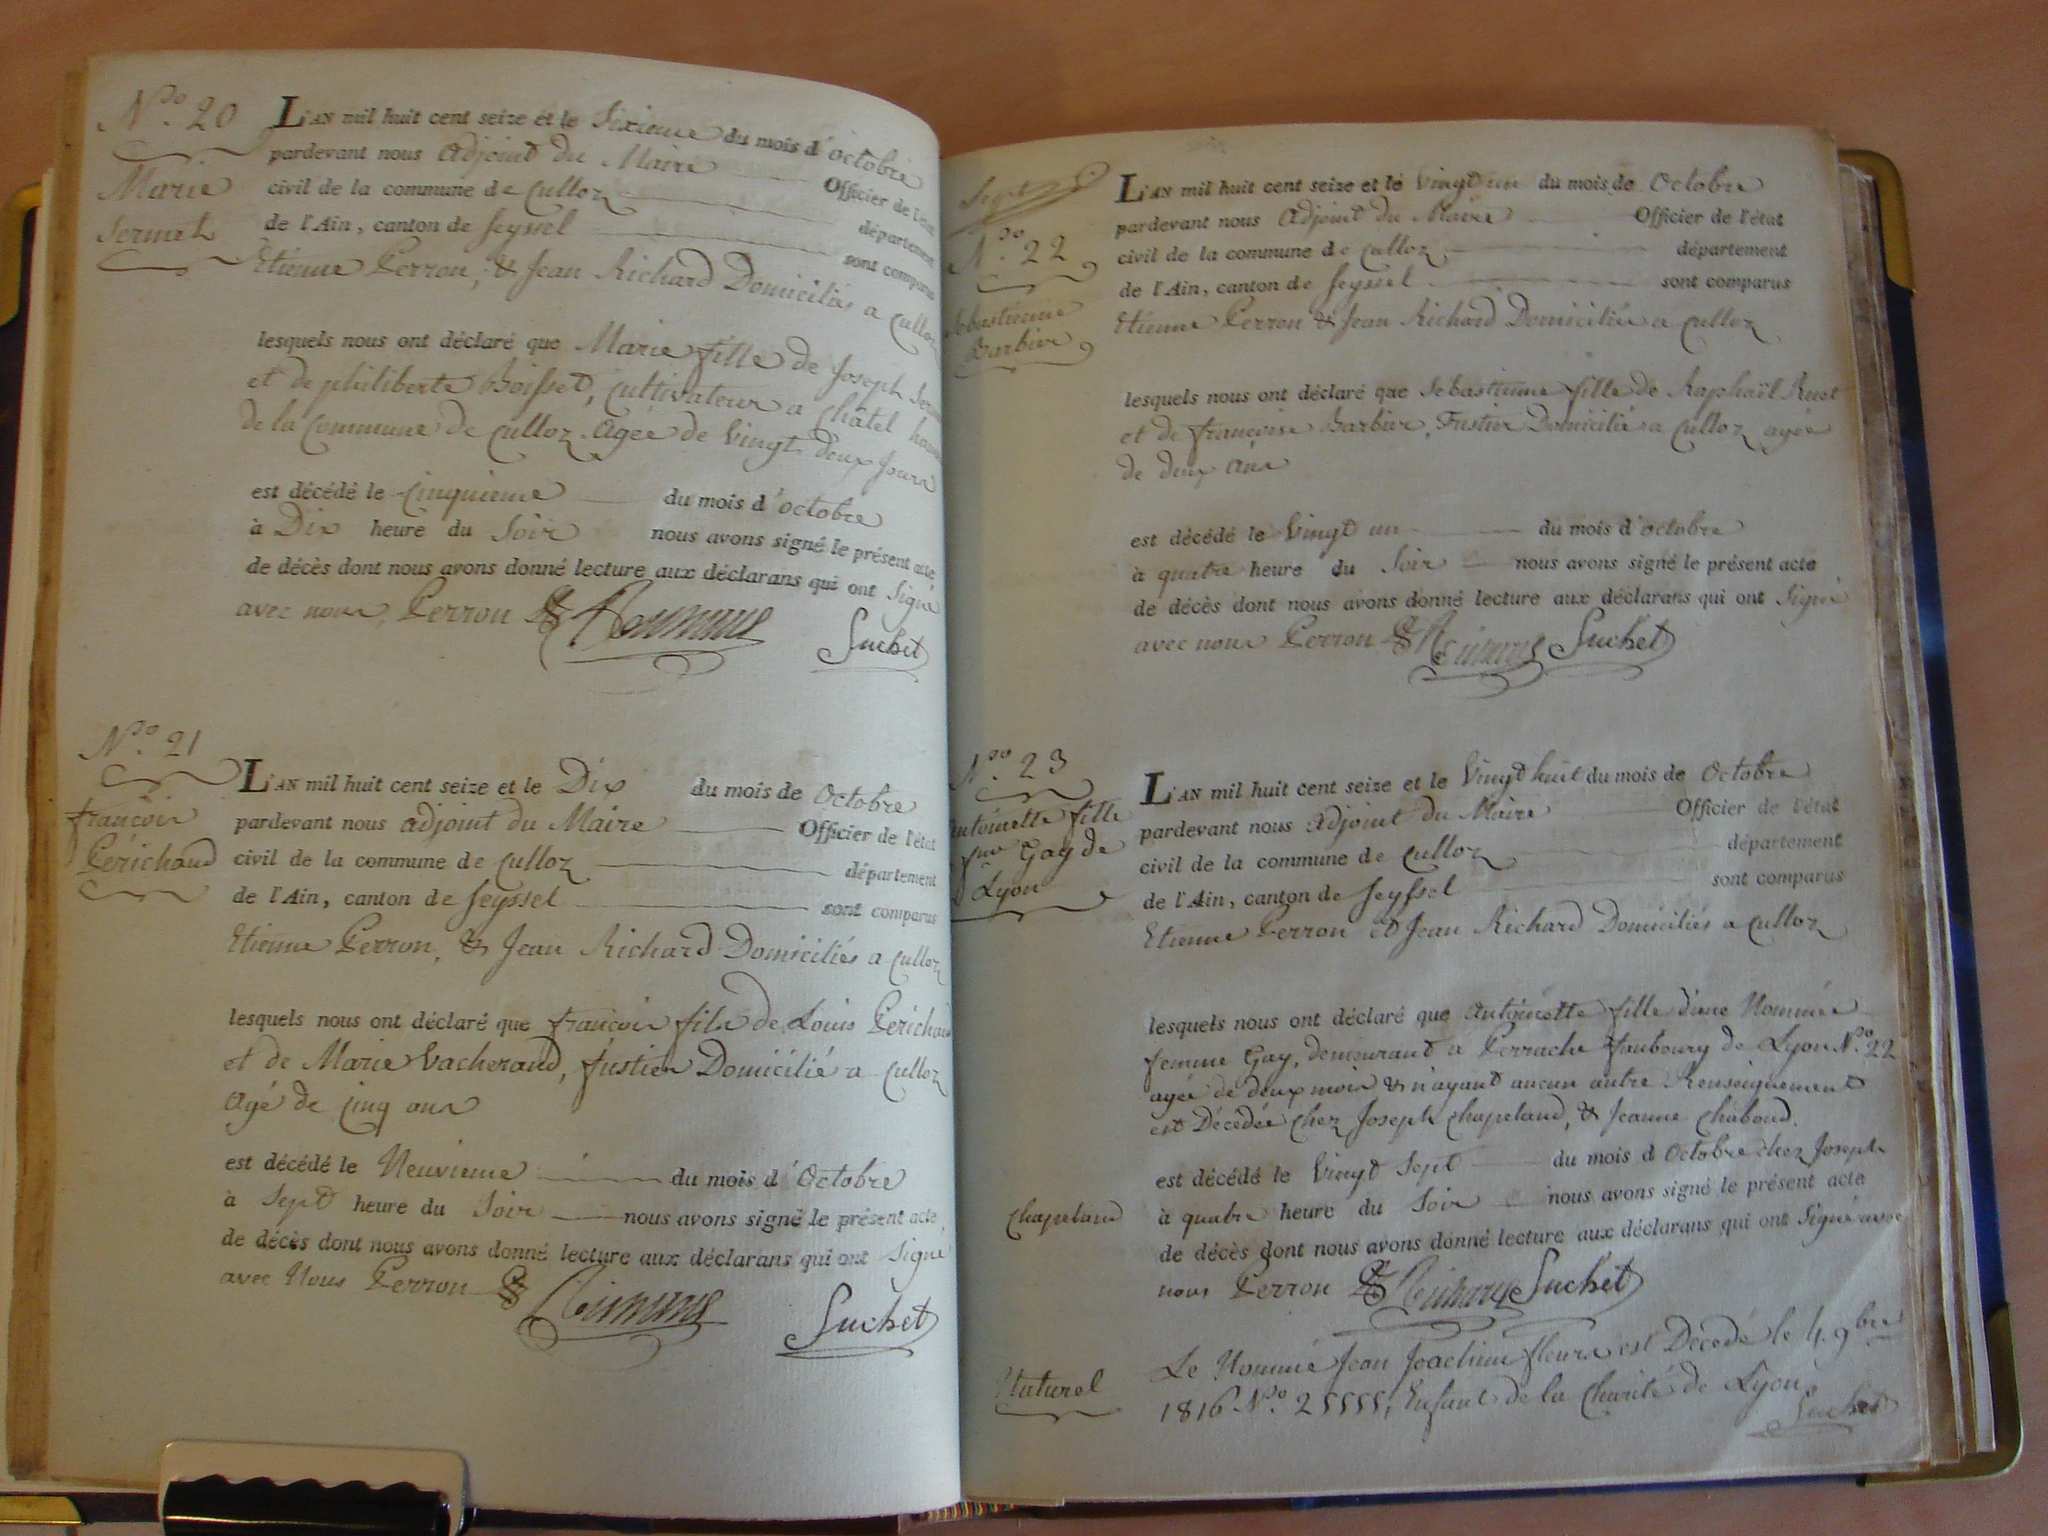 N.º 20
Marie
Sermet
L'AN mil huit cent seize et le Sixieme du mois d'octobre
pardevant nous Adjoint du Maire Officier de l'état
civil de la commune de Culloz département
de l'Ain, canton de Seyssel sont comparus
Etienne Perron, & Jean Richard Domiciliés a Culloz
lesquels nous ont déclaré que Marie fille de Joseph
et de philiberte Boisset, Cultivateur a Châtel
de la Commune de Culloz. Agée de Vingt deux Jours
est décédé le Cinquieme du mois d'octobre
à Dix heure du Soir nous avons signé le présent acte
de décès dont nous avons donné lecture aux déclarans qui ont Signé
avec nous Perron &
Suchet
N.º 21
françois
Périchaud
L'AN mil huit cent seize et le Dix du mois de Octobre
pardevant nous adjoint du Maire Officier de l'état
civil de la commune de Culloz département
de l'Ain, canton de Seyssel sont comparus
Etienne Perron, & Jean Richard Domiciliés a Culloz
lesquels nous ont déclaré que françois fils de Louis Perichaud
et de Marie Vacherand, fustier Domicilié a Culloz
Agé de Cinq ans
est décédé le Neuvieme du mois d'Octobre
à Sept heure du Soir nous avons signé le présent acte
de décès dont nous avons donné lecture aux déclarans qui ont Signé
avec Nous Perron &
Suchet
N.º 22
Sebastienne
Barbier
L'AN mil huit cent seize et le Vingt un du mois de Octobre
pardevant nous Adjoint du Maire Officier de l'état
civil de la commune de Culloz département
de l'Ain, canton de Seyssel sont comparus
Etienne Perron & Jean Richard Domiciliés a Culloz
lesquels nous ont déclaré que Sebastienne fille de Raphaël Ruet
et de françoise Barbier, Fustier Domicilié a Culloz agée
de deux Ans
est décédé le Vingt un du mois d'octobre
à quatre heure du Soir nous avons signé le présent acte
de décès dont nous avons donné lecture aux déclarans qui ont Signé
avec nous Perron & Suchet
N.º 23
Antoinette fille
fme Gay de
Lyon
L'AN mil huit cent seize et le Vingt huit du mois de Octobre
pardevant nous Adjoint du Maire Officier de l'état
civil de la commune de Culloz département
de l'Ain, canton de Seyssel sont comparus
Etienne Perron et Jean Richard Domiciliés a Culloz
lesquels nous ont déclaré que Antoinette fille d'une Nommée
femme Gay, demeurant a Perrache faubourg de Lyon N.º 22
agée de deux mois & n'ayant aucun autre Renseignement
est Décédée chez Joseph Chapeland, & Jeanne Chaboud.
est décédé le Vingt Sept du mois d Octobre chez Joseph
Chapeland
à quatre heure du Soir nous avons signé le présent acte
de décès dont nous avons donné lecture aux déclarans qui ont Signé avec
nous Perron & Suchet
Naturel
Le Nommé Jean Joachim fleurs est Décédé le 4. 9bre
1816 N.º 25555, Enfant de la Charité de Lyon
Suchet